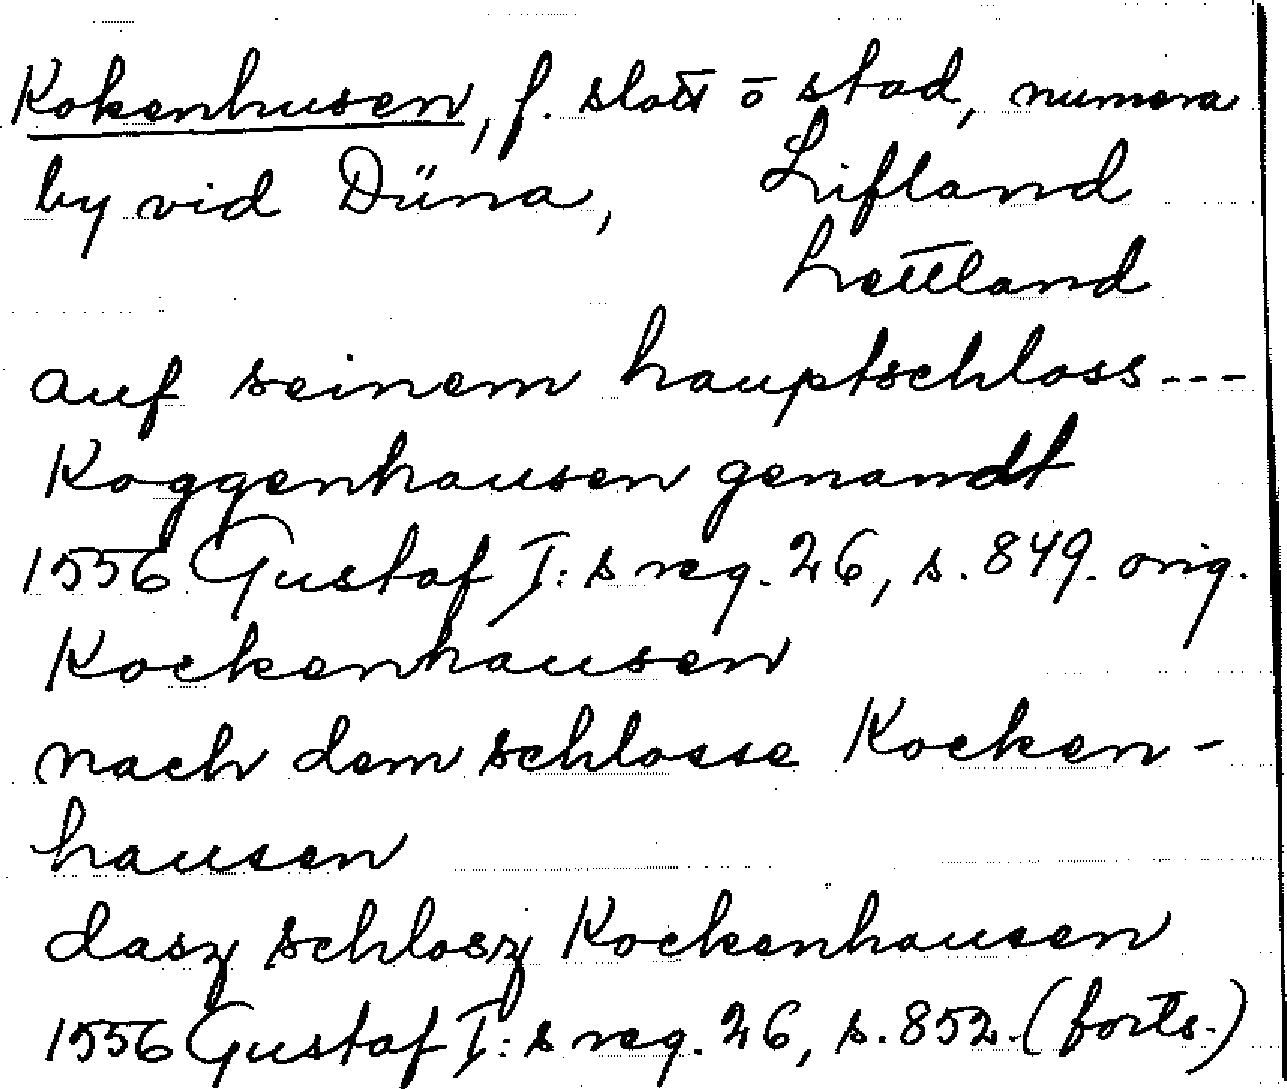 Kokenhusen, f. slott o stad, numera
by vid Düna, Lifland
Lettland
auf seinem hauptschloss---
Koggenhausen genandt
1556 Gustaf I:s reg. 26, s. 849. orig.
Kockenhausen
nach dem schlosse Kocken-
hausen
dasz schlosz Kockenhausen
1556 Gustaf I:s reg. 26, s. 852. (forts.)